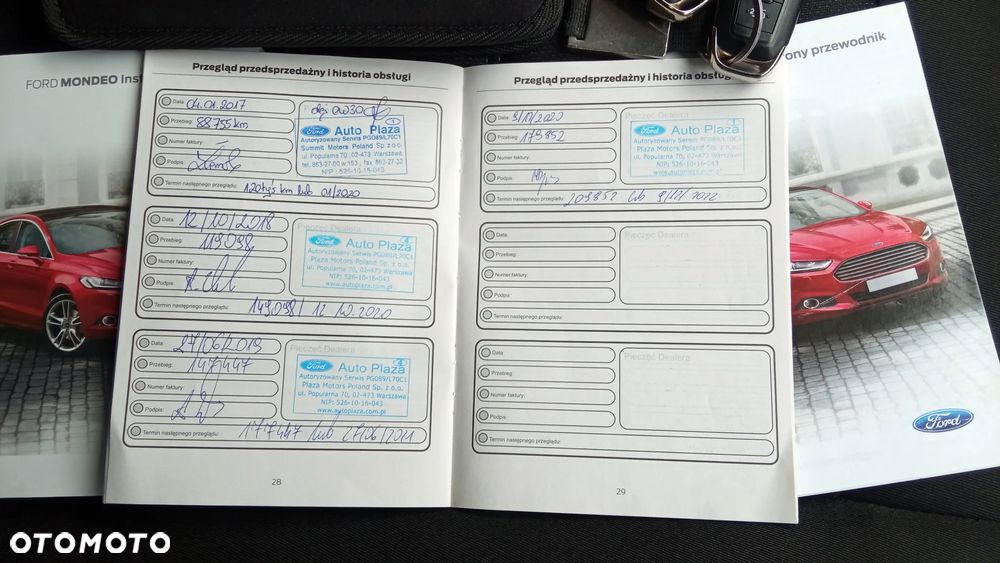 FORD MONDEO Inst
Przegląd przedsprzedażny i historia obsługi
Data: 04.01.2017
Przebieg: 88755 km
Numer faktury:
Podpis:
olej 0W30
Ford Auto Plaza
Autoryzowany Serwis PG089/L70C1
Summit Motors Poland Sp. z o.o.
ul. Popularna 70, 02-473 Warszawa
tel. 863-27-00 w.153, fax 863-27-32
NIP: 526-10-16-043
Termin następnego przeglądu: 120tyś km lub 01/2020
Data: 12/10/2018
Przebieg: 119.098
Numer faktury:
Podpis:
Ford Auto Plaza
Autoryzowany Serwis PG089/L70C1
Plaza Motors Poland Sp. z o.o.
ul. Popularna 70, 02-473 Warszawa
NIP: 526-10-16-043
www.autoplaza.com.pl
Termin następnego przeglądu: 149.098 / 12.10.2020
Data: 27/06/2019
Przebieg: 147447
Numer faktury:
Podpis:
Pieczęć Dealera
Ford Auto Plaza
Autoryzowany Serwis PG089/L70C1
Plaza Motors Poland Sp. z o.o.
ul. Popularna 70, 02-473 Warszawa
NIP: 526-10-16-043
www.autoplaza.com.pl
Termin następnego przeglądu: 177447 lub 27/06/2021
28
Przegląd przedsprzedażny i historia obsługi
Data:
Przebieg: 179852
Numer faktury:
Podpis:
Pieczęć Dealera
Ford Auto Plaza
Autoryzowany Serwis PG089/L70C1
Plaza Motors Poland Sp. z o.o.
ul. Popularna 70, 02-473 Warszawa
NIP: 526-10-16-043
Termin następnego przeglądu: 209852 lub
Data:
Przebieg:
Numer faktury:
Podpis:
Pieczęć Dealera
Termin następnego przeglądu:
Data:
Przebieg:
Numer faktury:
Podpis:
Pieczęć Dealera
Termin następnego przeglądu:
29
ony przewodnik
Ford
OTOMOTO